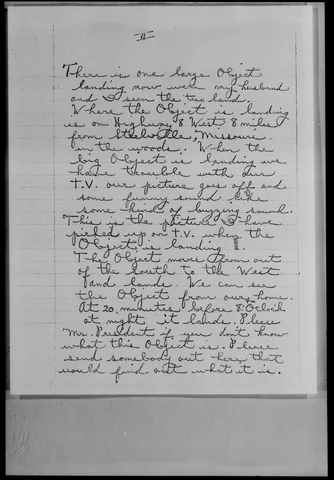 -II-
There is one large Object
landing now were my husband
and I seen the two land.
Where the Object is landing
is on Highway 8 West 8 miles
from Steelville, Missouri.
in the woods. When the
big Object is landing we
have trouble with our
T.V. our picture goes off and
some funny sound like
some kind of buzzing sound.
This is the picture I have
picked up on T.V. when the
Object is landing
The Object moves from out
of the South to the West
and lands. We can see
the Object from our home.
At 20 minutes before 8:Oclock
at night it lands. Please
Mr. President if you don't know
what this Object is. Please
send somebody out here that
would find out what it is.